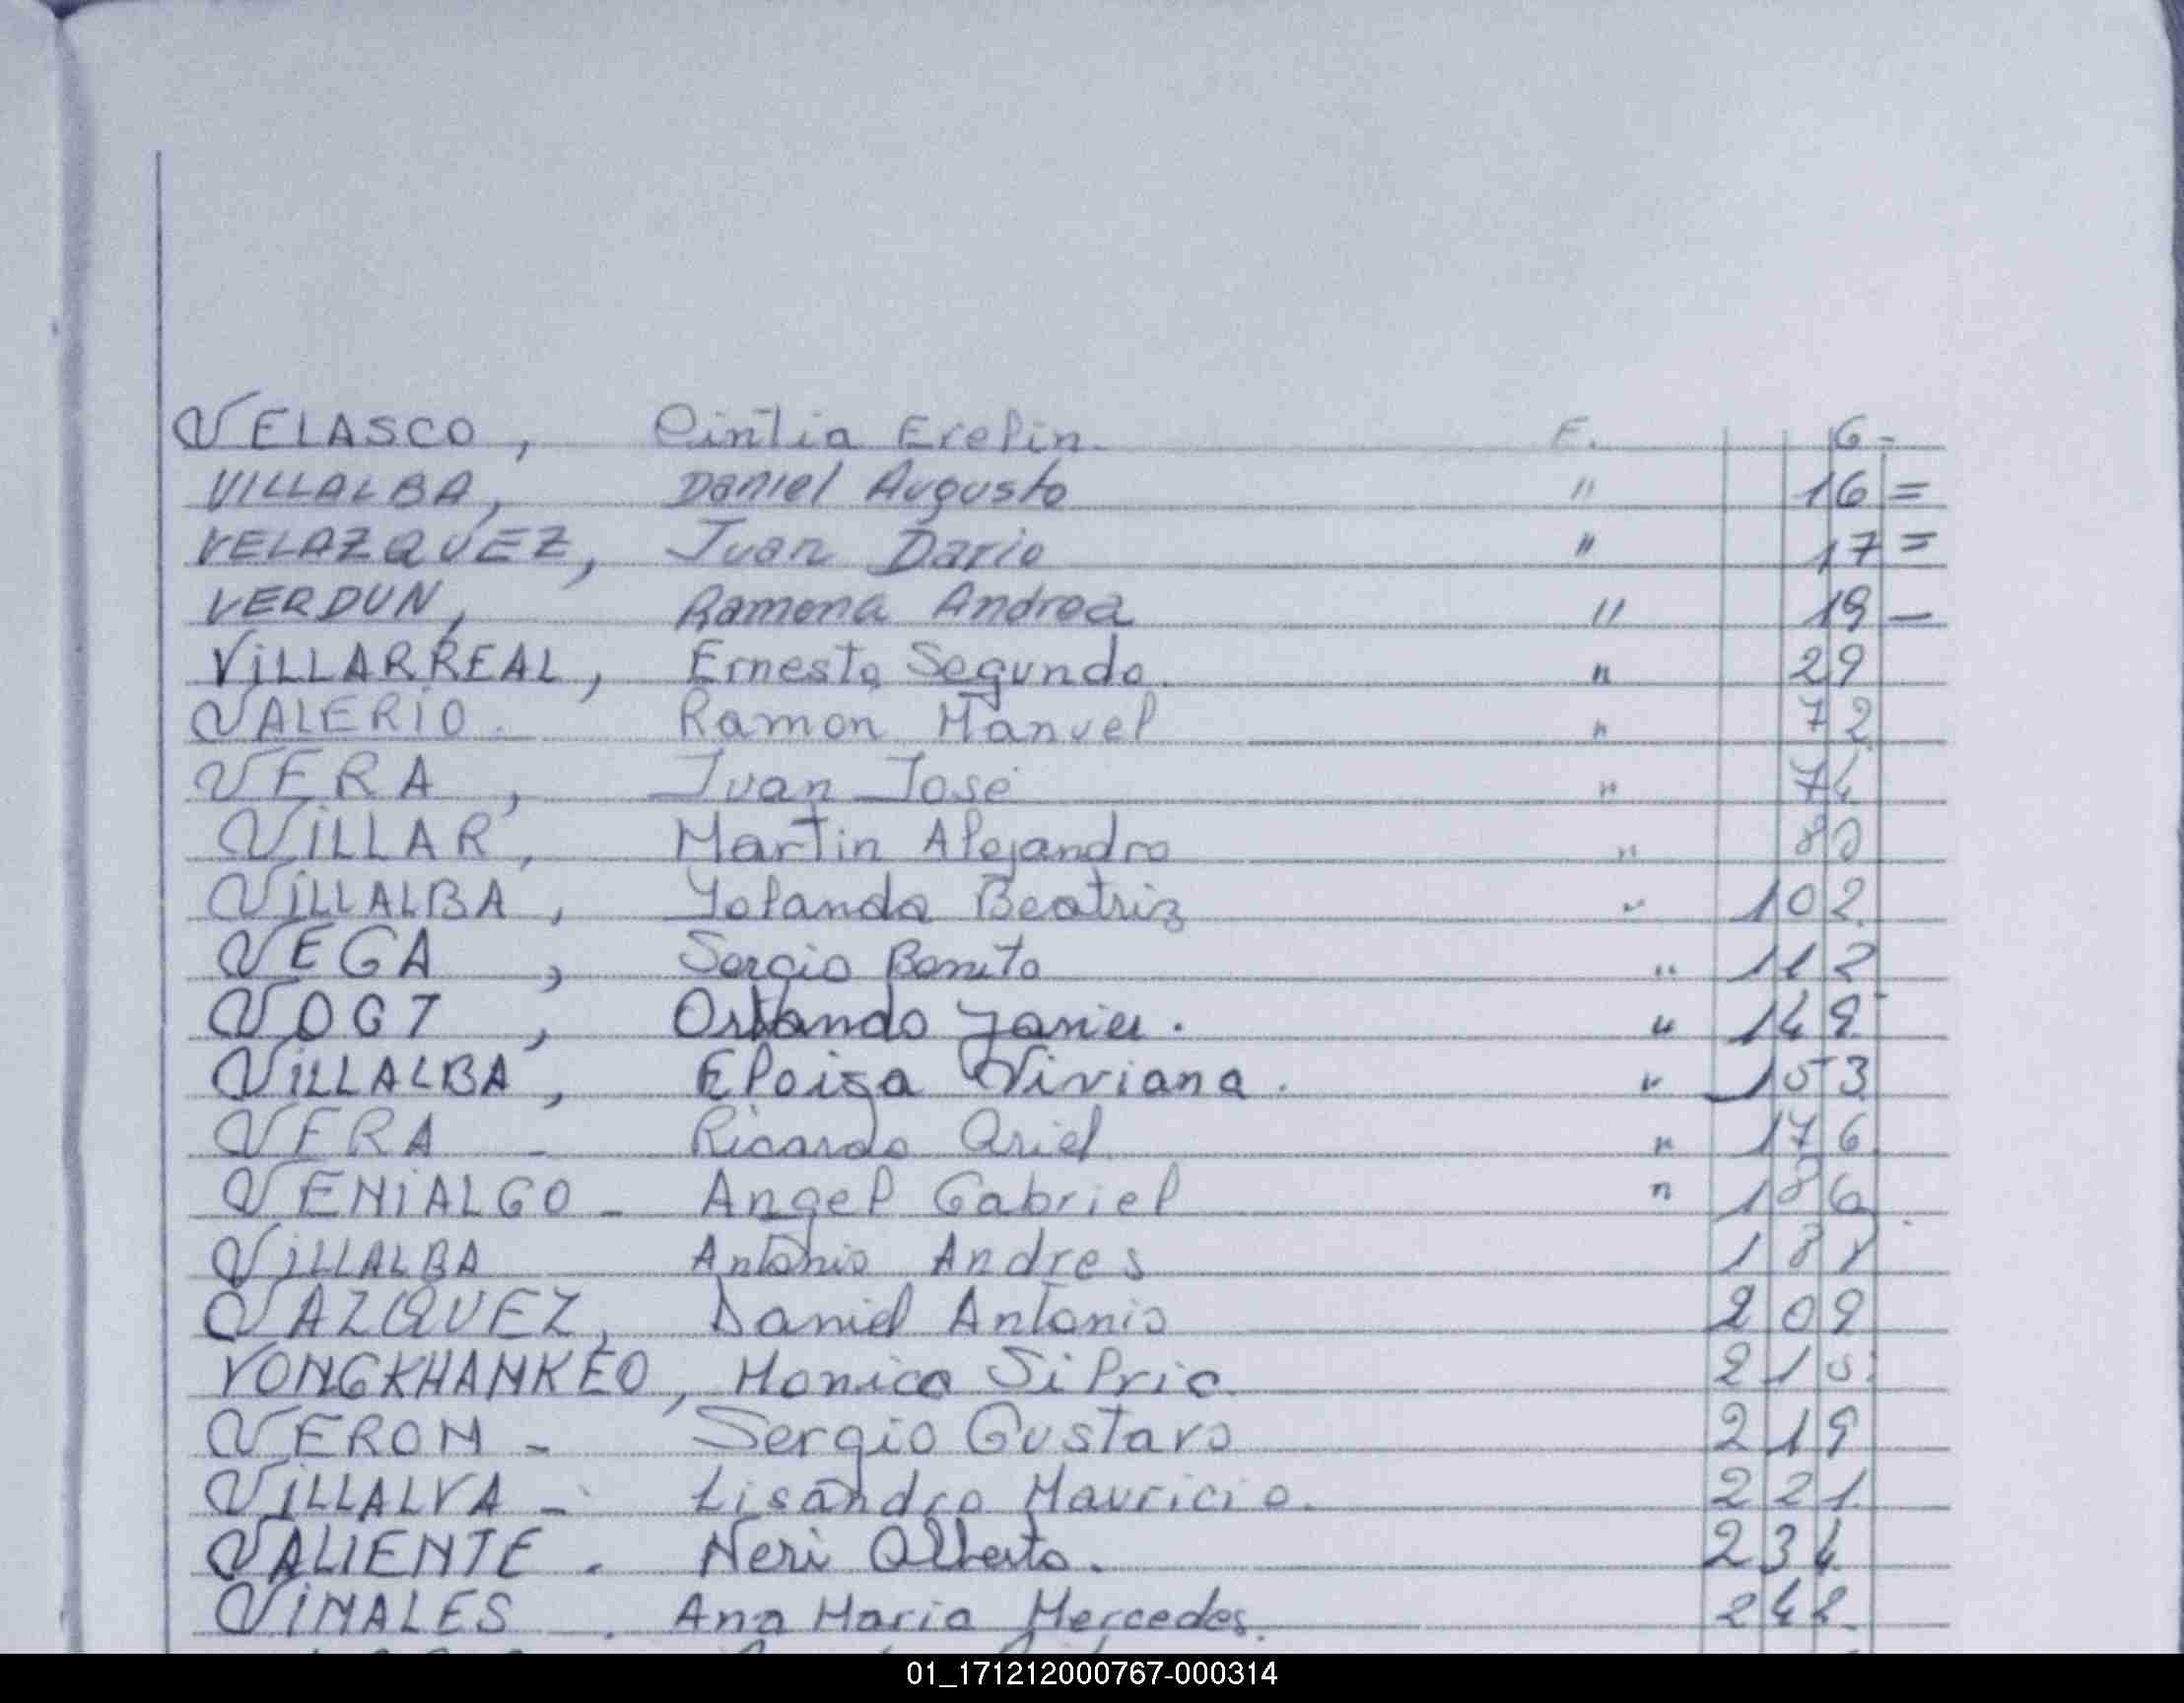 VELASCO, Cintia Erelin. F. 6-
VILLALBA, Daniel Augusto " 16=
VELAZQUEZ, Juan Dario " 17=
VERDUN, Ramona Andrea " 19-
ViLLARREAL, Ernesto Segundo. " 29
VALERiO. Ramon Manuel " 72
VERA, Juan José " 74
ViLLAR, Martin Alejandro " 80
ViLLALBA, Yolanda Beatriz " 102
VEGA, Sergio Benito " 112
VOGT, Orlando Javier. " 149
ViLLALBA, Eloisa Viviana. " 153
VERA - Ricardo Ariel " 176
VENiALGO - Angel Gabriel " 186
ViLLALBA Antonio Andres
VAZQUEZ, Daniel Antonio 209
VONGKHANKEO, Monica 215
VERON - Sergio Gustavo 219
ViLLALVA - Lisandro Mauricio. 221
VALIENTE. Neri Alberto. 234
ViNALES. Ana Maria Mercedes.
01_171212000767-000314